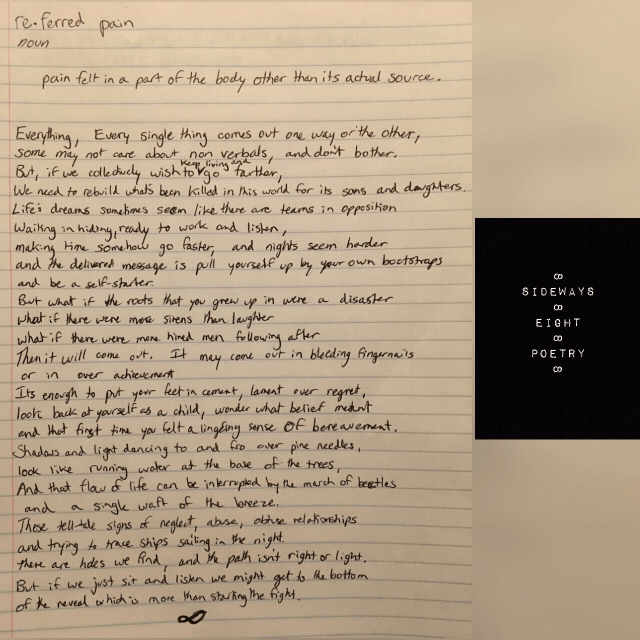 re·ferred pain
noun
pain felt in a part of the body other than its actual source.
Everything, Every single thing comes out one way or the other,
some may not care about non verbals, and don't bother.
But, if we collectively wish to keep living and go farther,
We need to rebuild what's been killed in this world for its sons and daughters.
Life's dreams sometimes seem like there are teams in opposition
Waiting in hiding, ready to work and listen,
making time somehow go faster, and nights seem harder
and the delivered message is pull yourself up by your own bootstraps
and be a self-starter.
But what if the roots that you grew up in were a disaster
what if there were more sirens than laughter
what if there were more hired men following after
Then it will come out. It may come out in bleeding fingernails
or in over achievement
Its enough to put your feet in cement, lament over regret,
look back at yourself as a child, wonder what belief meant
and that first time you felt a lingering sense OF bereavement.
Shadows and light dancing to and fro over pine needles,
look like running water at the base of the trees,
And that flow of life can be interrupted by the march of beetles
and a single waft of the breeze.
Those tell-tale signs of neglect, abuse, obtuse relationships
and trying to trace ships sailing in the night.
there are holes we find, and the path isn't right or light.
But if we just sit and listen we might get to the bottom
of the reveal which is more than starting the fight.
∞
SIDEWAYS
∞
EIGHT
∞
POETRY
∞